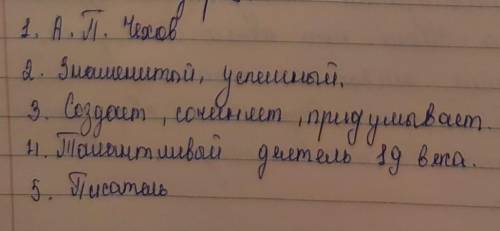 1. А. П. Чехов
2. Знаменитой, успешный.
3. Создает, сочиняет, придумывает.
4. Талантливой деятель 19 века.
5. Писатель